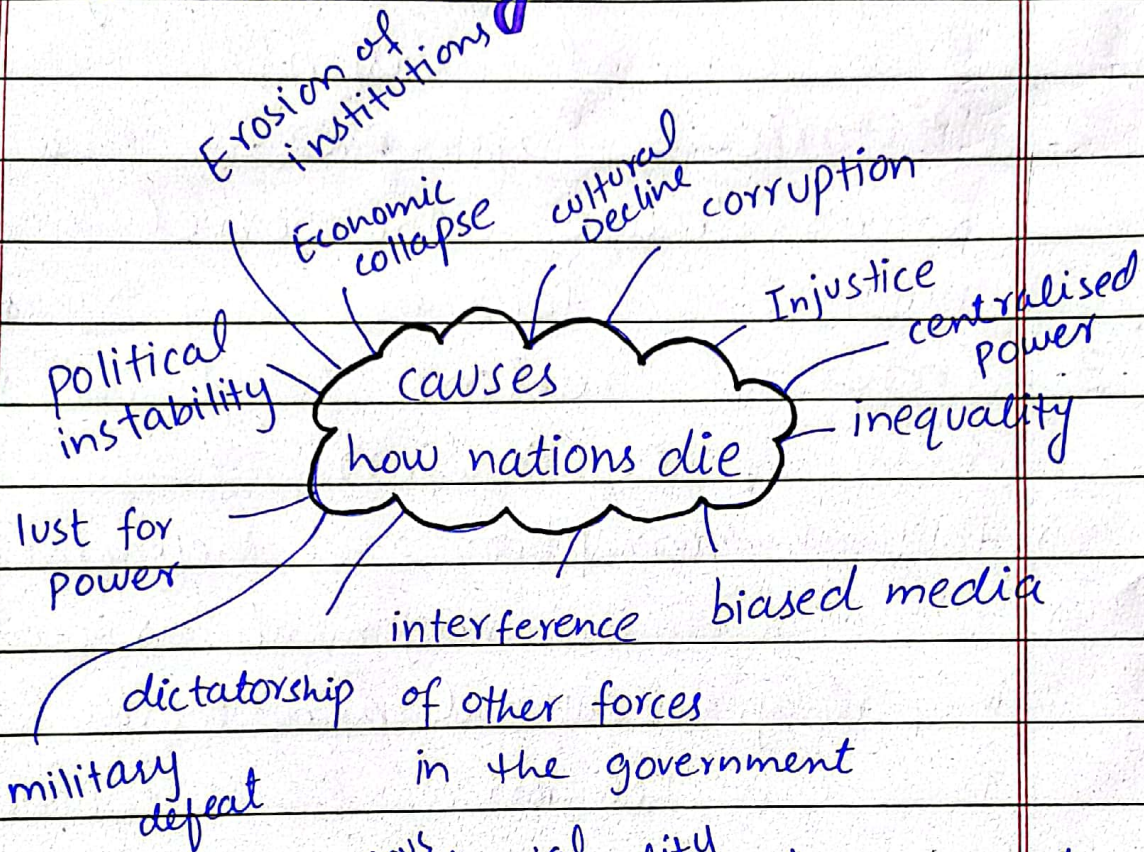 Erosion of
institutions
Economic
collapse
cultural
Decline
corruption
Injustice
centralised
power
political
instability
causes
how nations die
inequality
lust for
power
interference
of other forces
in the government
biased media
dictatorship
military
defeat